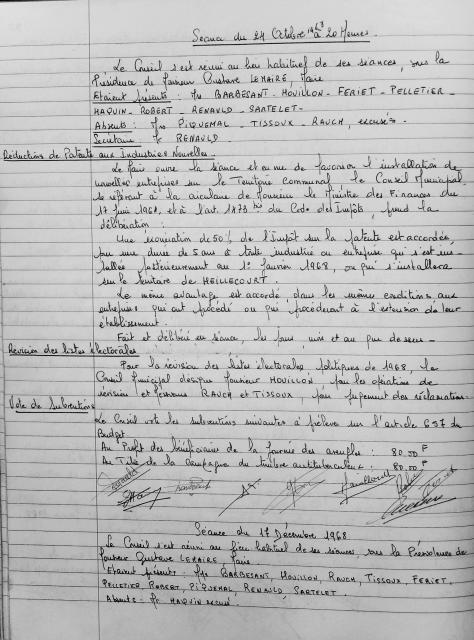 Séance du 24 Octobre 1968 à 20 Heures.
Le Conseil s'est réuni au lieu habituel de ses séances, sous la
Présidence de Monsieur Gustave LEMAIRE, Maire
Etaient présents : MM BARBESANT - HOUILLON - FERIET - PELLETIER -
HAQUIN - ROBERT - RENAULD - SARTELET -
Absents : MM PIQUEMAL - TISSOUX - RAUCH, excusés.
Secrétaire Mr RENAULD.
Réductions de Patente aux Industries Nouvelles.
Le Maire ouvre la séance et en vue de favoriser l'installation de
nouvelles entreprises sur le Territoire communal le Conseil Municipal
se référant à la circulaire de Monsieur le Ministre des Finances du
17 Juin 1961, et à l'art. 1473 bis du Code des Impôts, prend la
délibération :
Une exonération de 50% de l'Impôt sur la patente est accordée,
pour une durée de 5 ans à toute industrie ou entreprise qui s'est ins-
tallée postérieurement au 1er Janvier 1968, ou qui s'installera
sur le territoire de HEILLECOURT.
Le même avantage est accordé, dans les mêmes conditions aux
entreprises qui ont procédé ou qui procéderont à l'extension de leur
établissement.
Fait et délibéré en séance, les jour, mois et an que dessus -
Révision des listes électorales
Pour la révision des listes électorales politiques de 1968, le
Conseil Municipal désigne Monsieur HOUILLON, pour les opérations de
révision et Messieurs RAUCH et TISSOUX, pour jugement des réclamations.
Vote de Subventions
Le Conseil vote les subventions suivantes à prélever sur l'article 657 du
Budget
Au Profit des bénéficiaires de la Journée des aveugles : 80.00 F
Au Titre de la Campagne du timbre antituberculeux : 80.00 F
Séance du 17 Décembre 1968
Le Conseil s'est réuni au lieu habituel de ses séances, sous la Présidence de
Monsieur Gustave LEMAIRE, Maire
Etaient présents : MM BARBESANT, HOUILLON, RAUCH, TISSOUX, FERIET,
PELLETIER, ROBERT, PIQUEMAL, RENAULD, SARTELET.
Absents : Mr HAQUIN excusé.